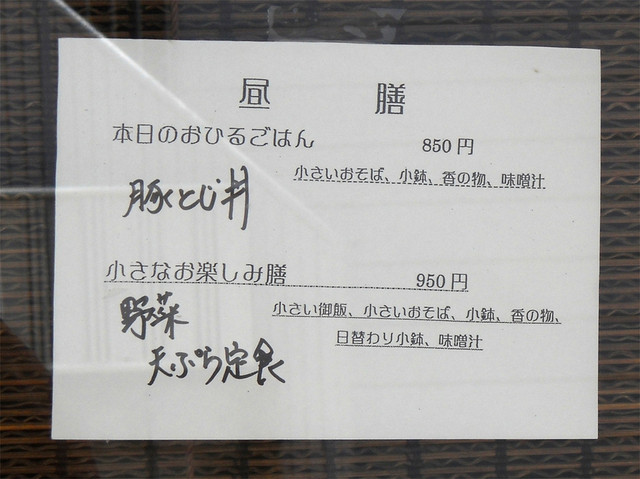 昼 膳
本日のおひるごはん 850円
小さいおそば、小鉢、香の物、味噌汁
豚とじ丼
小さなお楽しみ膳 950円
野菜 小さい御飯、小さいおそば、小鉢、香の物、
日替わり小鉢、味噌汁
天ぷら定食